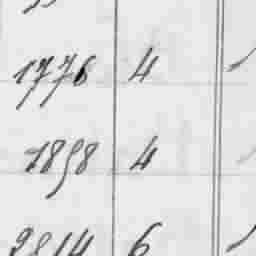 1776 4
1898 4
2814 6